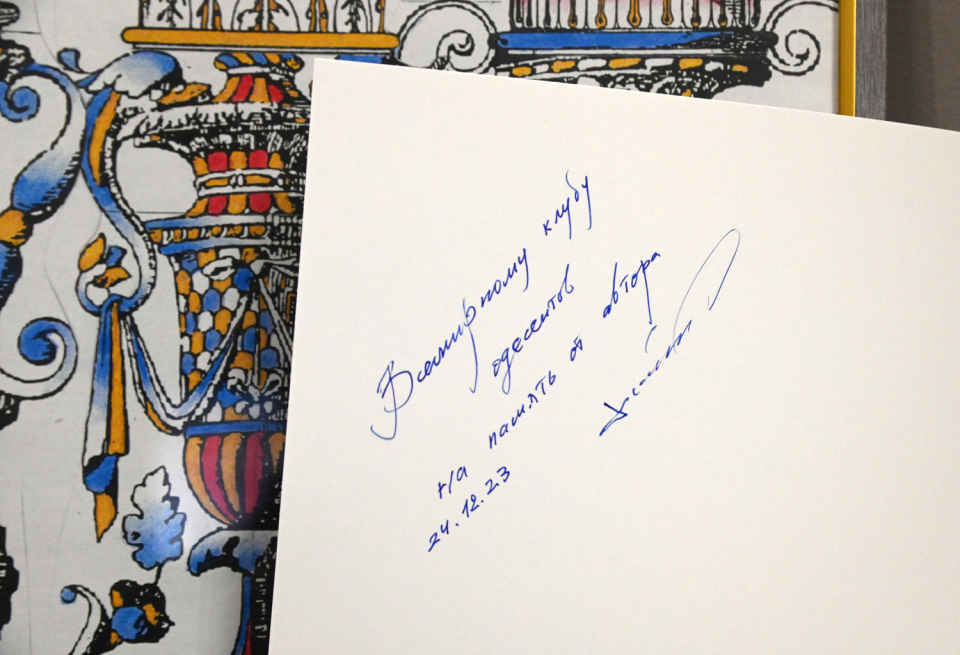 Всемирному клубу
одесситов
на память от автора
24.12.23